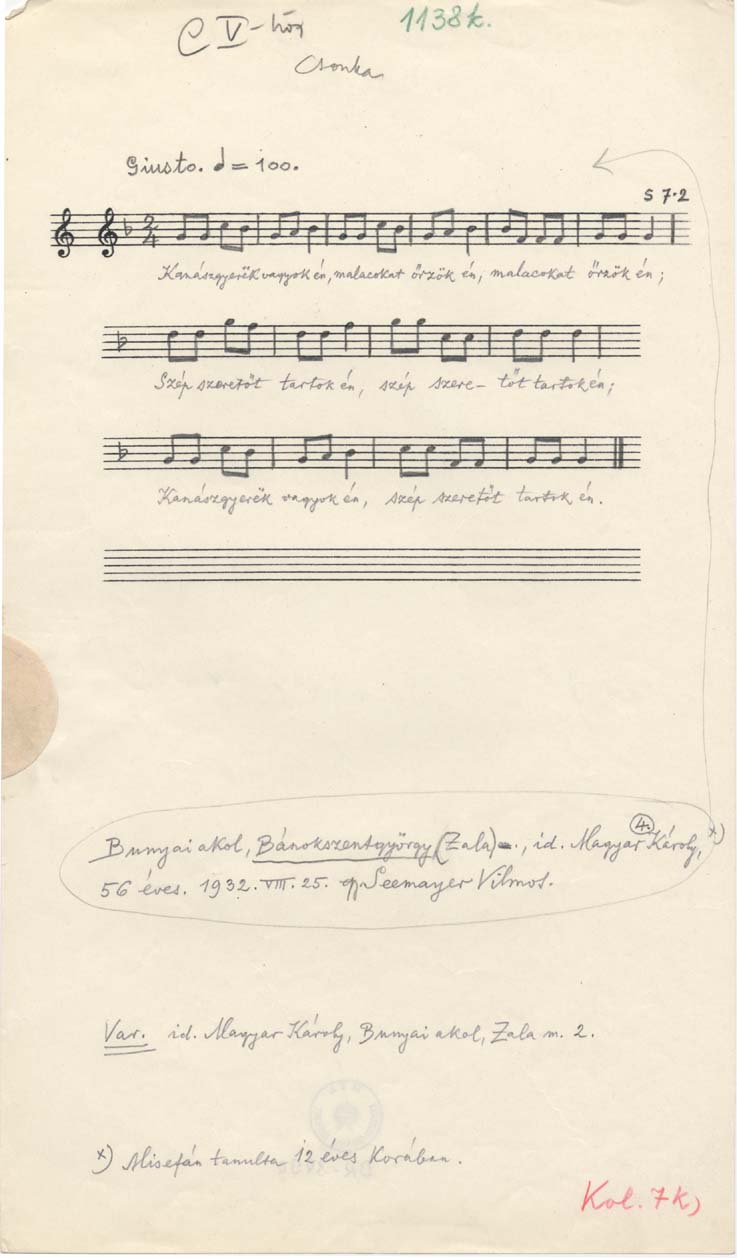 C V-höz
1138k.
Csonka
Giusto. = 100.
S 7·2
2 4
Kanászgyerëk vagyok én, malacokat őrzök én, malacokat őrzök én;
Szép szeretőt tartok én, szép szere- tőt tartok én;
Kanászgyerëk vagyok én, szép szeretőt tartok én.
4.
Bunyai akol, Bánokszentgyörgy (Zala)., id. Magyar Károly, x)
56 éves. 1932. VIII. 25. Seemayer Vilmos.
Var. id. Magyar Károly, Bunyai akol, Zala m. 2.
x) Misefán tanulta 12 éves Korában.
Kol. 7k)